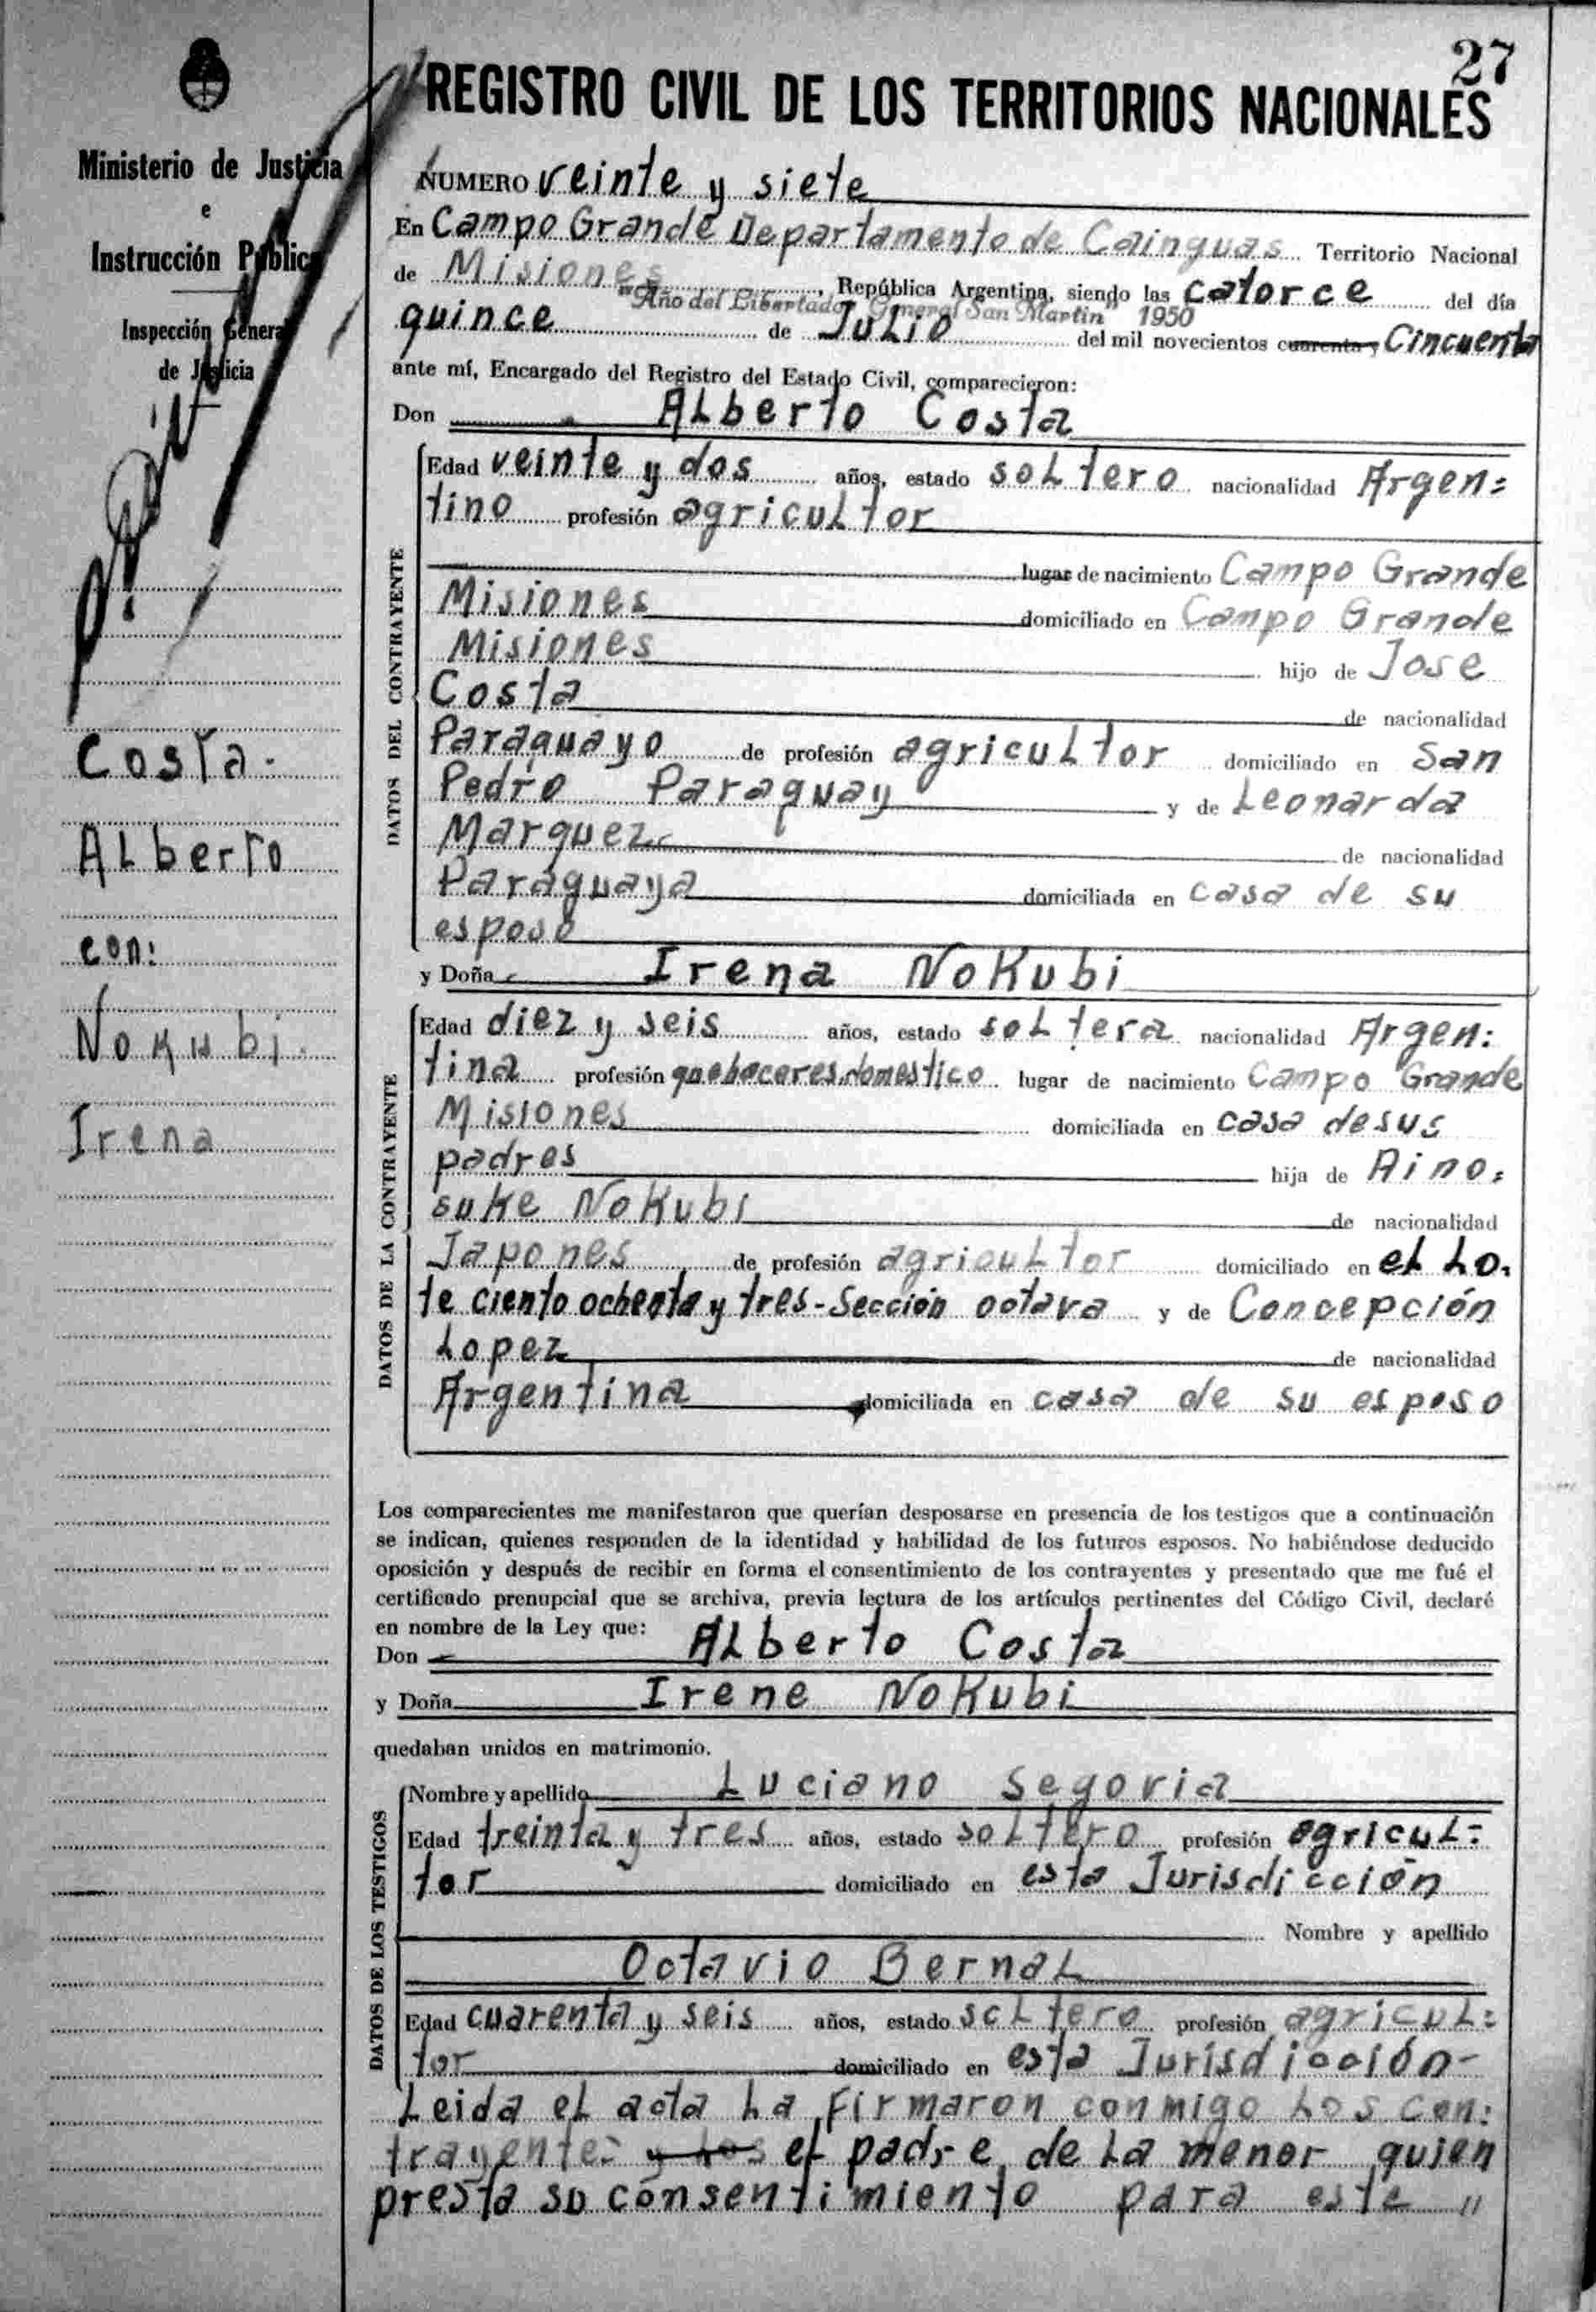 27
REGISTRO CIVIL DE LOS TERRITORIOS NACIONALES
Ministerio de Justicia
e
Instrucción Pública
Inspección General
de Justicia
Costa.
Alberto
con:
Nokubi.
Irena
NUMERO veinte y siete
En Campo Grande Departamento de Cainguas Territorio Nacional
de Misiones, República Argentina, siendo las catorce del día
"Año del Libertador General San Martin" 1950
quince de Julio del mil novecientos cuarenta y Cincuenta
ante mí, Encargado del Registro del Estado Civil, comparecieron:
Don Alberto Costa
DATOS DEL CONTRAYENTE
Edad veinte y dos años, estado soltero nacionalidad Argen=
tino profesión agricultor
lugar de nacimiento Campo Grande
Misiones domiciliado en Campo Grande
Misiones hijo de Jose
Costa de nacionalidad
Paraguayo de profesión agricultor domiciliado en San
Pedro Paraguay y de Leonarda
Marquez de nacionalidad
Paraguaya domiciliada en casa de su
esposo
y Doña Irena Nokubi
DATOS DE LA CONTRAYENTE
Edad diez y seis años, estado soltera nacionalidad Argen:
tina profesión quehaceres domestico lugar de nacimiento Campo Grande
Misiones domiciliada en casa de sus
padres hija de Aino=
suke Nokubi de nacionalidad
Japones de profesión agricultor domiciliado en el Lo.
te ciento ochenta y tres-Sección octava y de Concepción
Lopez de nacionalidad
Argentina domiciliada en casa de su esposo
Los comparecientes me manifestaron que querían desposarse en presencia de los testigos que a continuación
se indican, quienes responden de la identidad y habilidad de los futuros esposos. No habiéndose deducido
oposición y después de recibir en forma el consentimiento de los contrayentes y presentado que me fué el
certificado prenupcial que se archiva, previa lectura de los artículos pertinentes del Código Civil, declaré
en nombre de la Ley que:
Don Alberto Costa
y Doña Irene Nokubi
quedaban unidos en matrimonio.
DATOS DE LOS TESTIGOS
Nombre y apellido Luciano Segovia
Edad treinta y tres años, estado soltero profesión agricul=
tor domiciliado en esta Jurisdicción
Nombre y apellido
Octavio Bernal
Edad cuarenta y seis años, estado soltero profesión agricul=
tor domiciliado en esta Jurisdicción-
Leida el acta la firmaron conmigo los con:
trayentes y los el padre de la menor quien
presta su consentimiento para este "